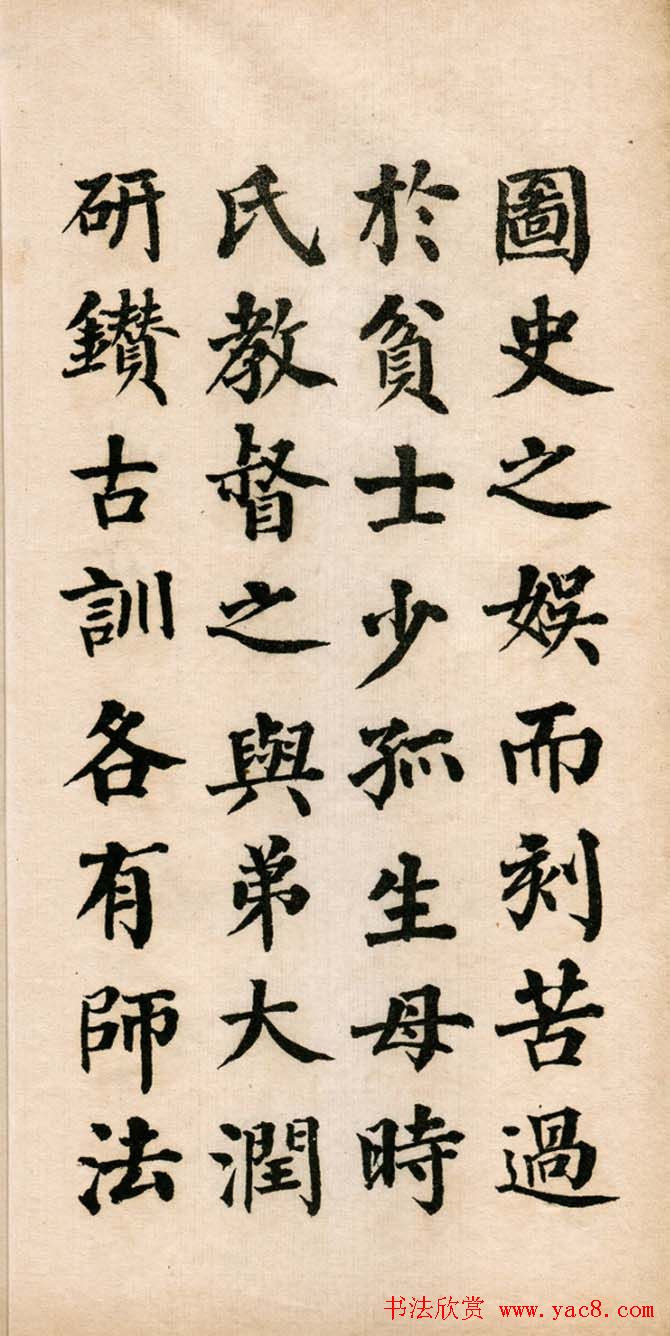 圖史之娛而刻苦過
於貧士少孤生母時
氏教督之與弟大潤
研鑚古訓各有師法
书法欣赏 www.yac8.com